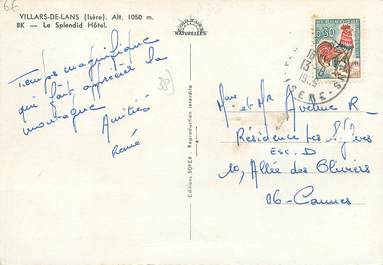 66
VILLARS-DE-LANS (Isère). Alt. 1050 m.
8K — Le Splendid Hôtel.
NATURELLES
Temps magnifique
qui fait apprécier la
montagne
Amitiés
René
38
Editions SOFER - Reproduction interdite
0,30
13
1965
ISERE
Mme et Mr Avenue R
Résidence les
ESC. D
10, Allée des Oliviers
06-Cannes